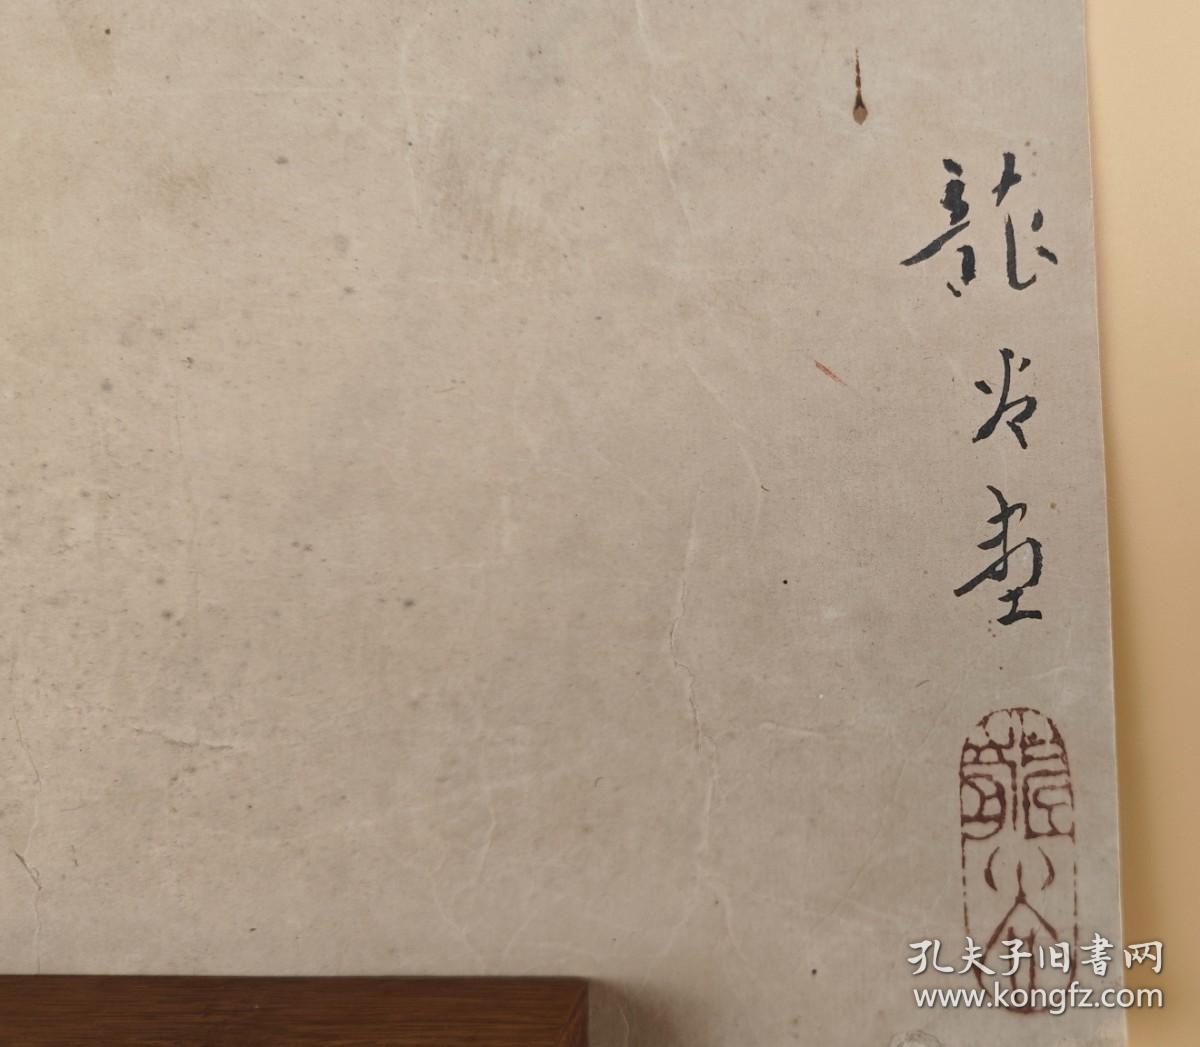 龍谷畫
龍谷
孔夫子旧書网
www.kongfz.com